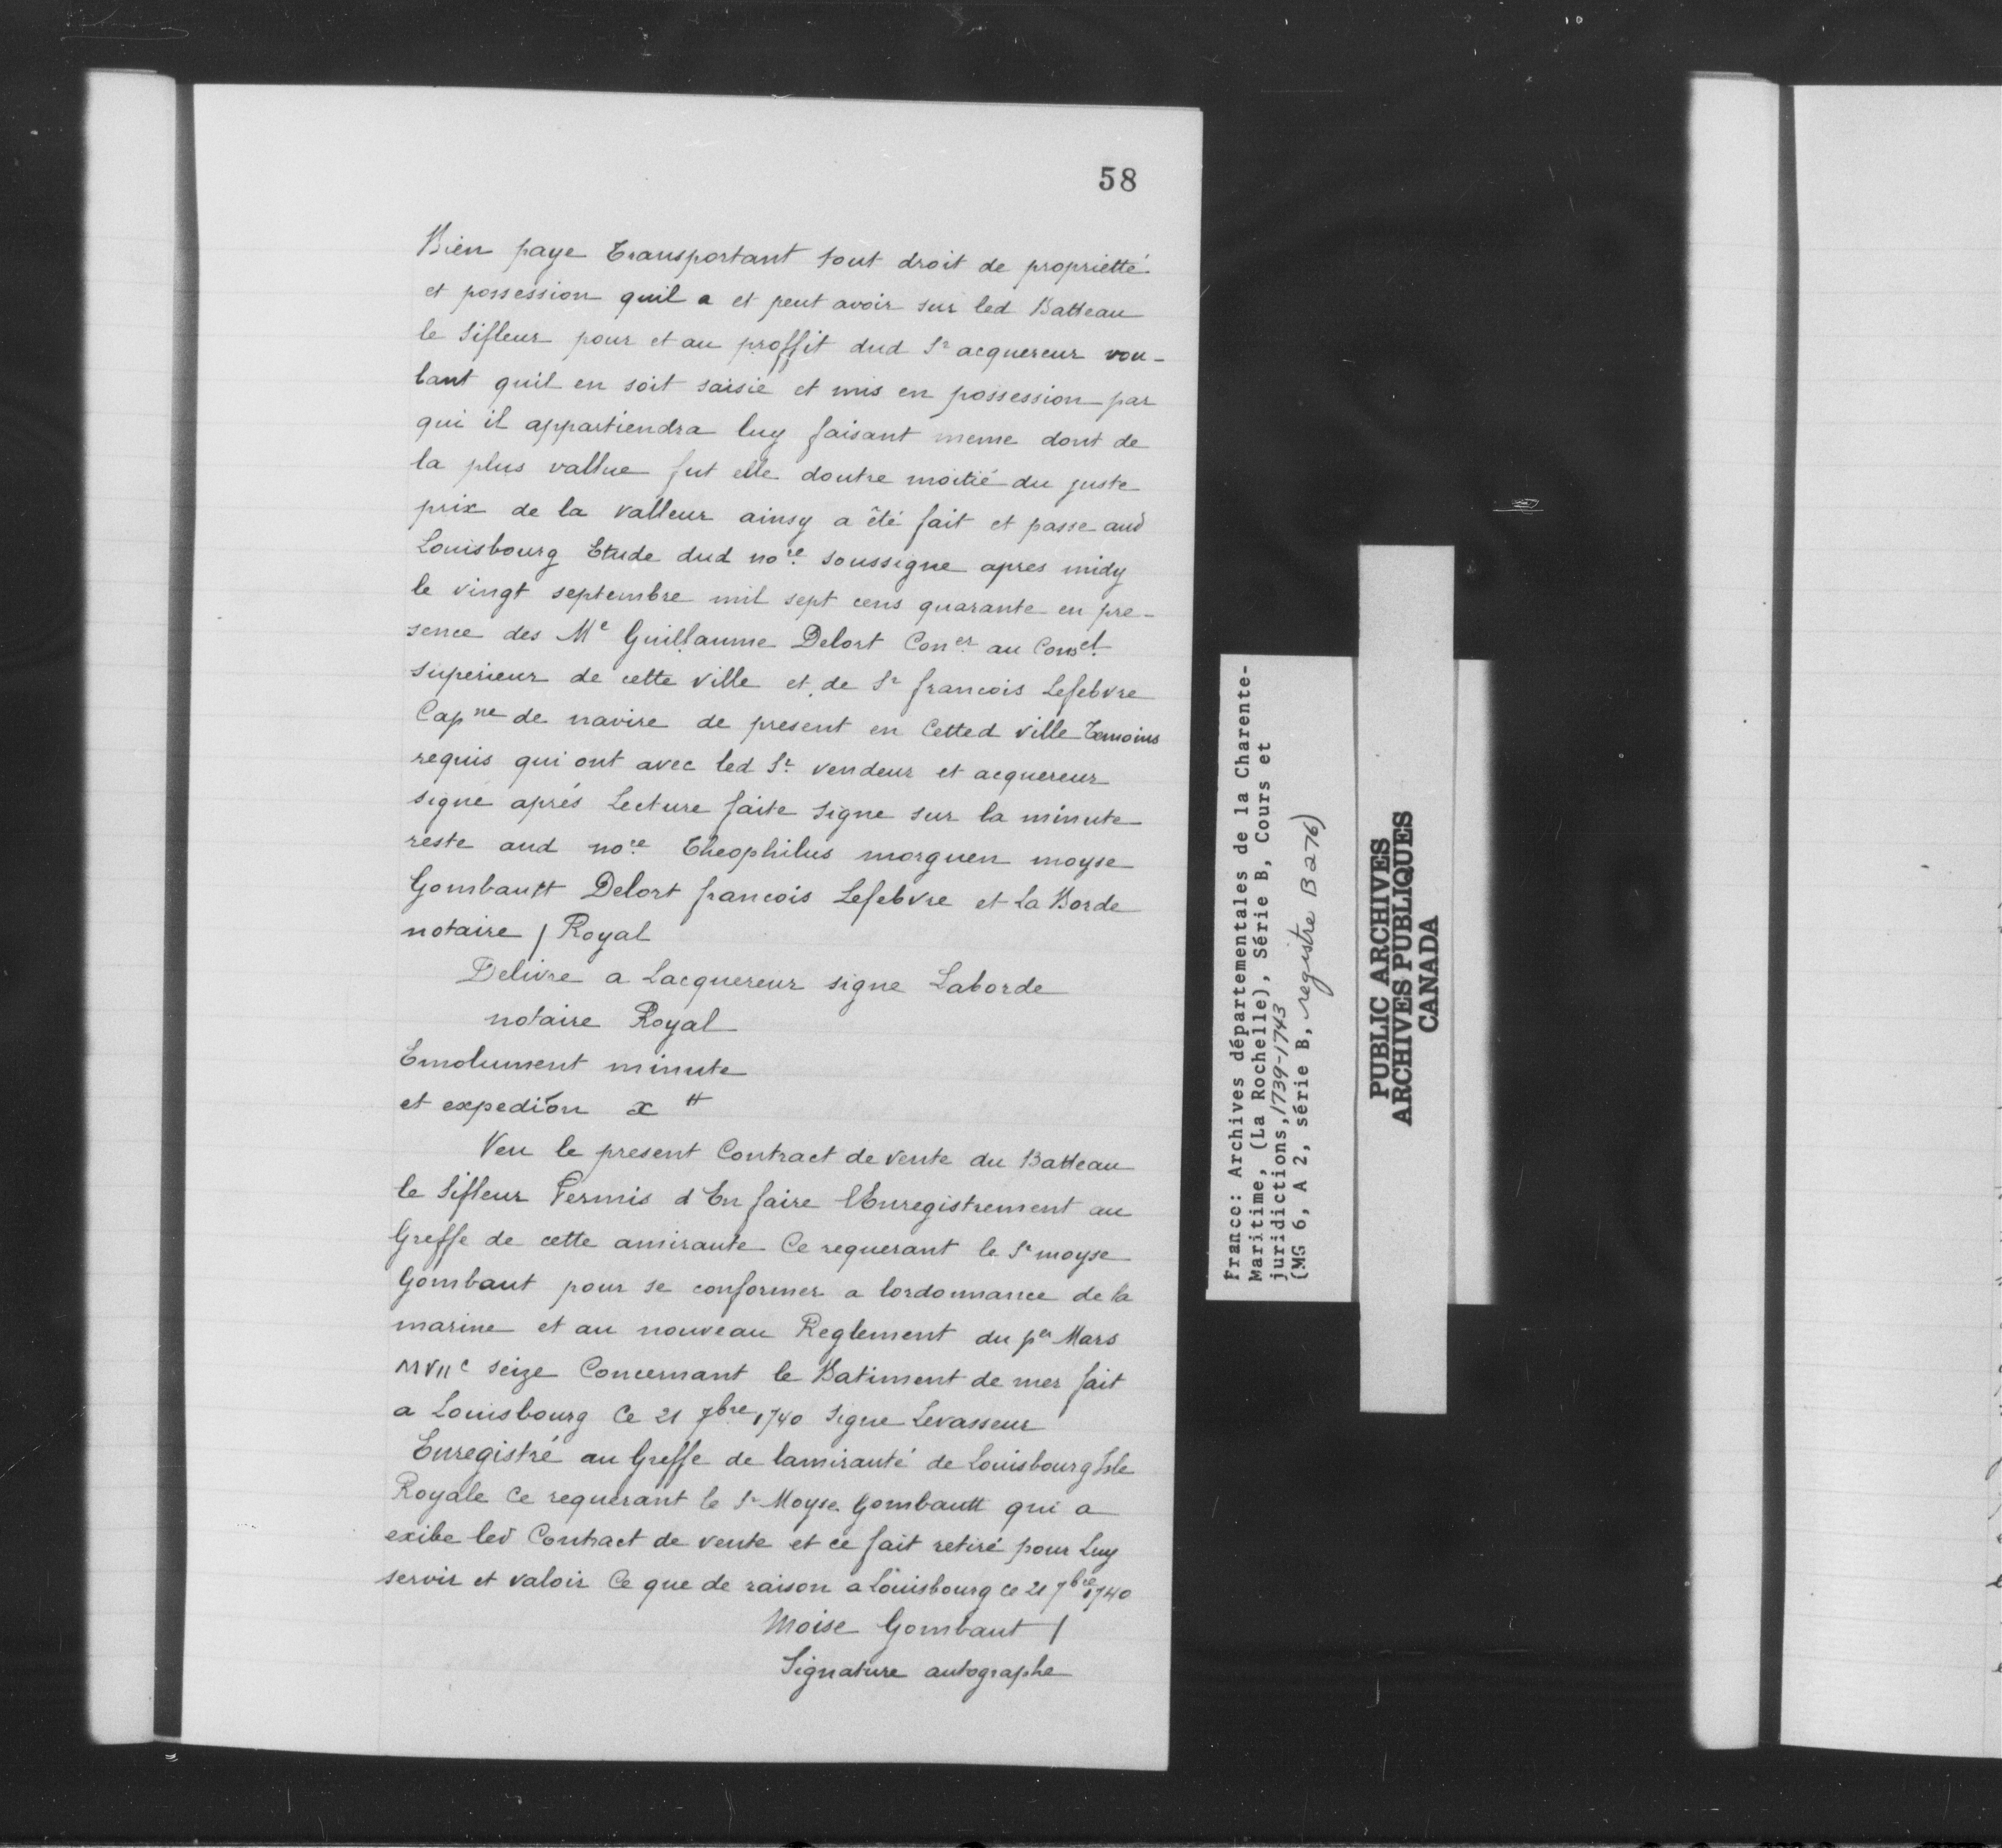 58
Bien paye Transportant tout droit de proprietté
et possession quil a et peut avoir sur led Batteau
le Sifleur pour et au proffit dud Sr acquereur vou-
lant quil en soit saisie et mis en possession par
qui il appartiendra luy faisant meme dont de
la plus vallue fut elle doutre moitié du juste
prix de la valleur ainsy a été fait et passe aud
Louisbourg Etude dud nore soussigne apres midy
le vingt septembre mil sept cens quarante en pre-
sence des Me Guillaume Delort Coner au Conseil
superieur de cette ville et de Sr francois Lefebvre
Capne de navire de present en Cetted ville Temoins
requis qui ont avec led Sr vendeur et acquereur
signe aprés Lecture faite signe sur la minute
reste aud nore Theophilus morguen moyse
Gombautt Delort francois Lefebvre et La Borde
notaire / Royal
Delivre a Lacquereur signe Laborde
notaire Royal
Emolument minute
et expedion x ₶
Veu le present Contract de vente du Batteau
le Sifleur Permis d'En faire lEnregistrement au
Greffe de cette amiraute Ce requerant le Sr moyse
Gombaut pour se conformer a lordonnance de la
marine et au nouveau Reglement du per Mars
MVIIc seize Concernant le Batiment de mer fait
a Louisbourg Ce 21 7bre 1740 Signe Levasseur
Enregistré au Greffe de lamirauté de Louisbourg Isle
Royale Ce requerant le Sr Moyse Gombautt qui a
exibe led Contract de vente et ce fait retiré pour Luy
servir et valoir Ce que de raison a Louisbourg ce 21 7bre 1740
Moise Gombaut /
Signature autographe
France: Archives départementales de la Charente-
Maritime, (La Rochelle), Série B, Cours et
juridictions, 1739-1743
(MG 6, A 2, série B, registre B 276)
PUBLIC ARCHIVES
ARCHIVES PUBLIQUES
CANADA